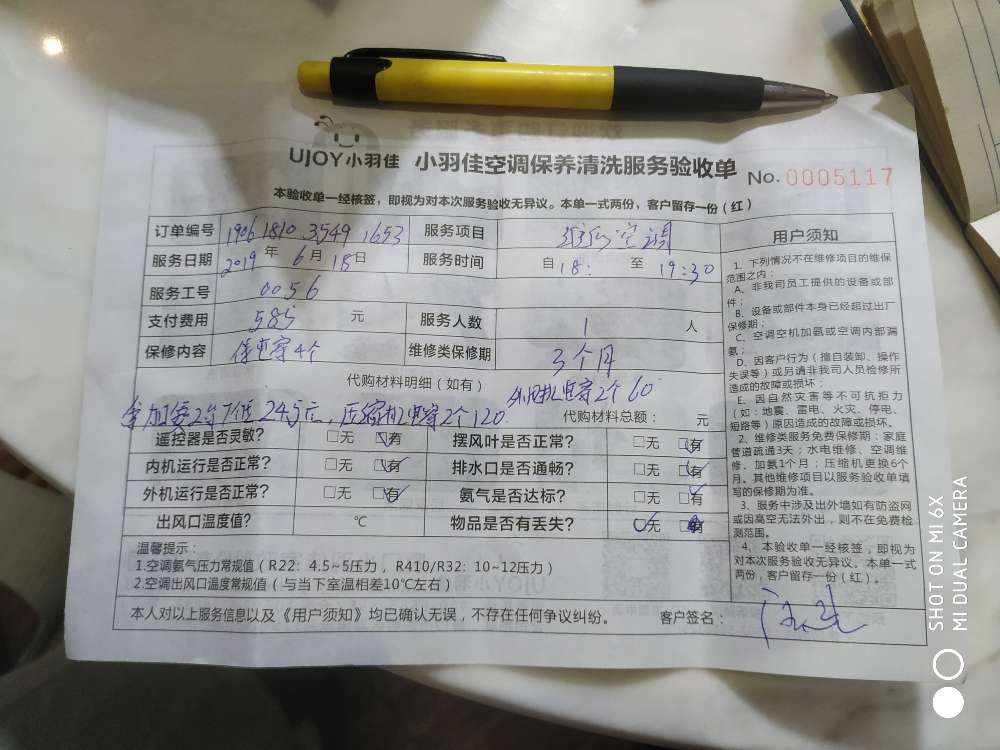 UJOY小羽佳 小羽佳空调保养清洗服务验收单 No. 0005117
本验收单一经核签，即视为对本次服务验收无异议。本单一式两份，客户留存一份（红）
订单编号 1906 1810 3549 1653 服务项目 空调
服务日期 2019 年 6 月 18 日 服务时间 自 18: 至 19:30
服务工号 0056
支付费用 585 元 服务人数 1 人
保修内容 电容4个 维修类保修期 3个月
代购材料明细（如有） 电容2个60
加 2台 245元，压缩机电容2个120 代购材料总额： 元
遥控器是否灵敏？ □无 □有 摆风叶是否正常？ □无 □有
内机运行是否正常？ □无 □有 排水口是否通畅？ □无 □有
外机运行是否正常？ □无 □有 氨气是否达标？ □无 □有
出风口温度值？ ℃ 物品是否有丢失？ □无 □有
温馨提示：
1.空调氨气压力常规值（R22：4.5~5压力，R410/R32：10~12压力）
2.空调出风口温度常规值（与当下室温相差10℃左右）
本人对以上服务信息以及《用户须知》均已确认无误，不存在任何争议纠纷。 客户签名：
用户须知
1、下列情况不在维修项目的维保
范围之内：
A、非我司员工提供的设备或部
件；
B、设备或部件本身已经超过出厂
保修期；
C、空调空机加氨或空调内部漏
氨；
D、因客户行为（擅自装卸、操作
失误等）或另请非我司人员检修所
造成的故障或损坏；
E、因自然灾害等不可抗拒力
（如：地震、雷电、火灾、停电、
短路等）原因造成的故障或损坏。
2、维修类服务免费保修期：家庭
管道疏通3天；水电维修、空调维
修、加氨1个月；压缩机更换6个
月。其他维修项目以服务验收单填
写的保修期为准。
3、服务中涉及出外墙如有防盗网
或因高空无法外出，则不在免费检
测范围。
4、本验收单一经核签，即视为
对本次服务验收无异议。本单一式
两份，客户留存一份（红）。
SHOT ON MI 6X
MI DUAL CAMERA